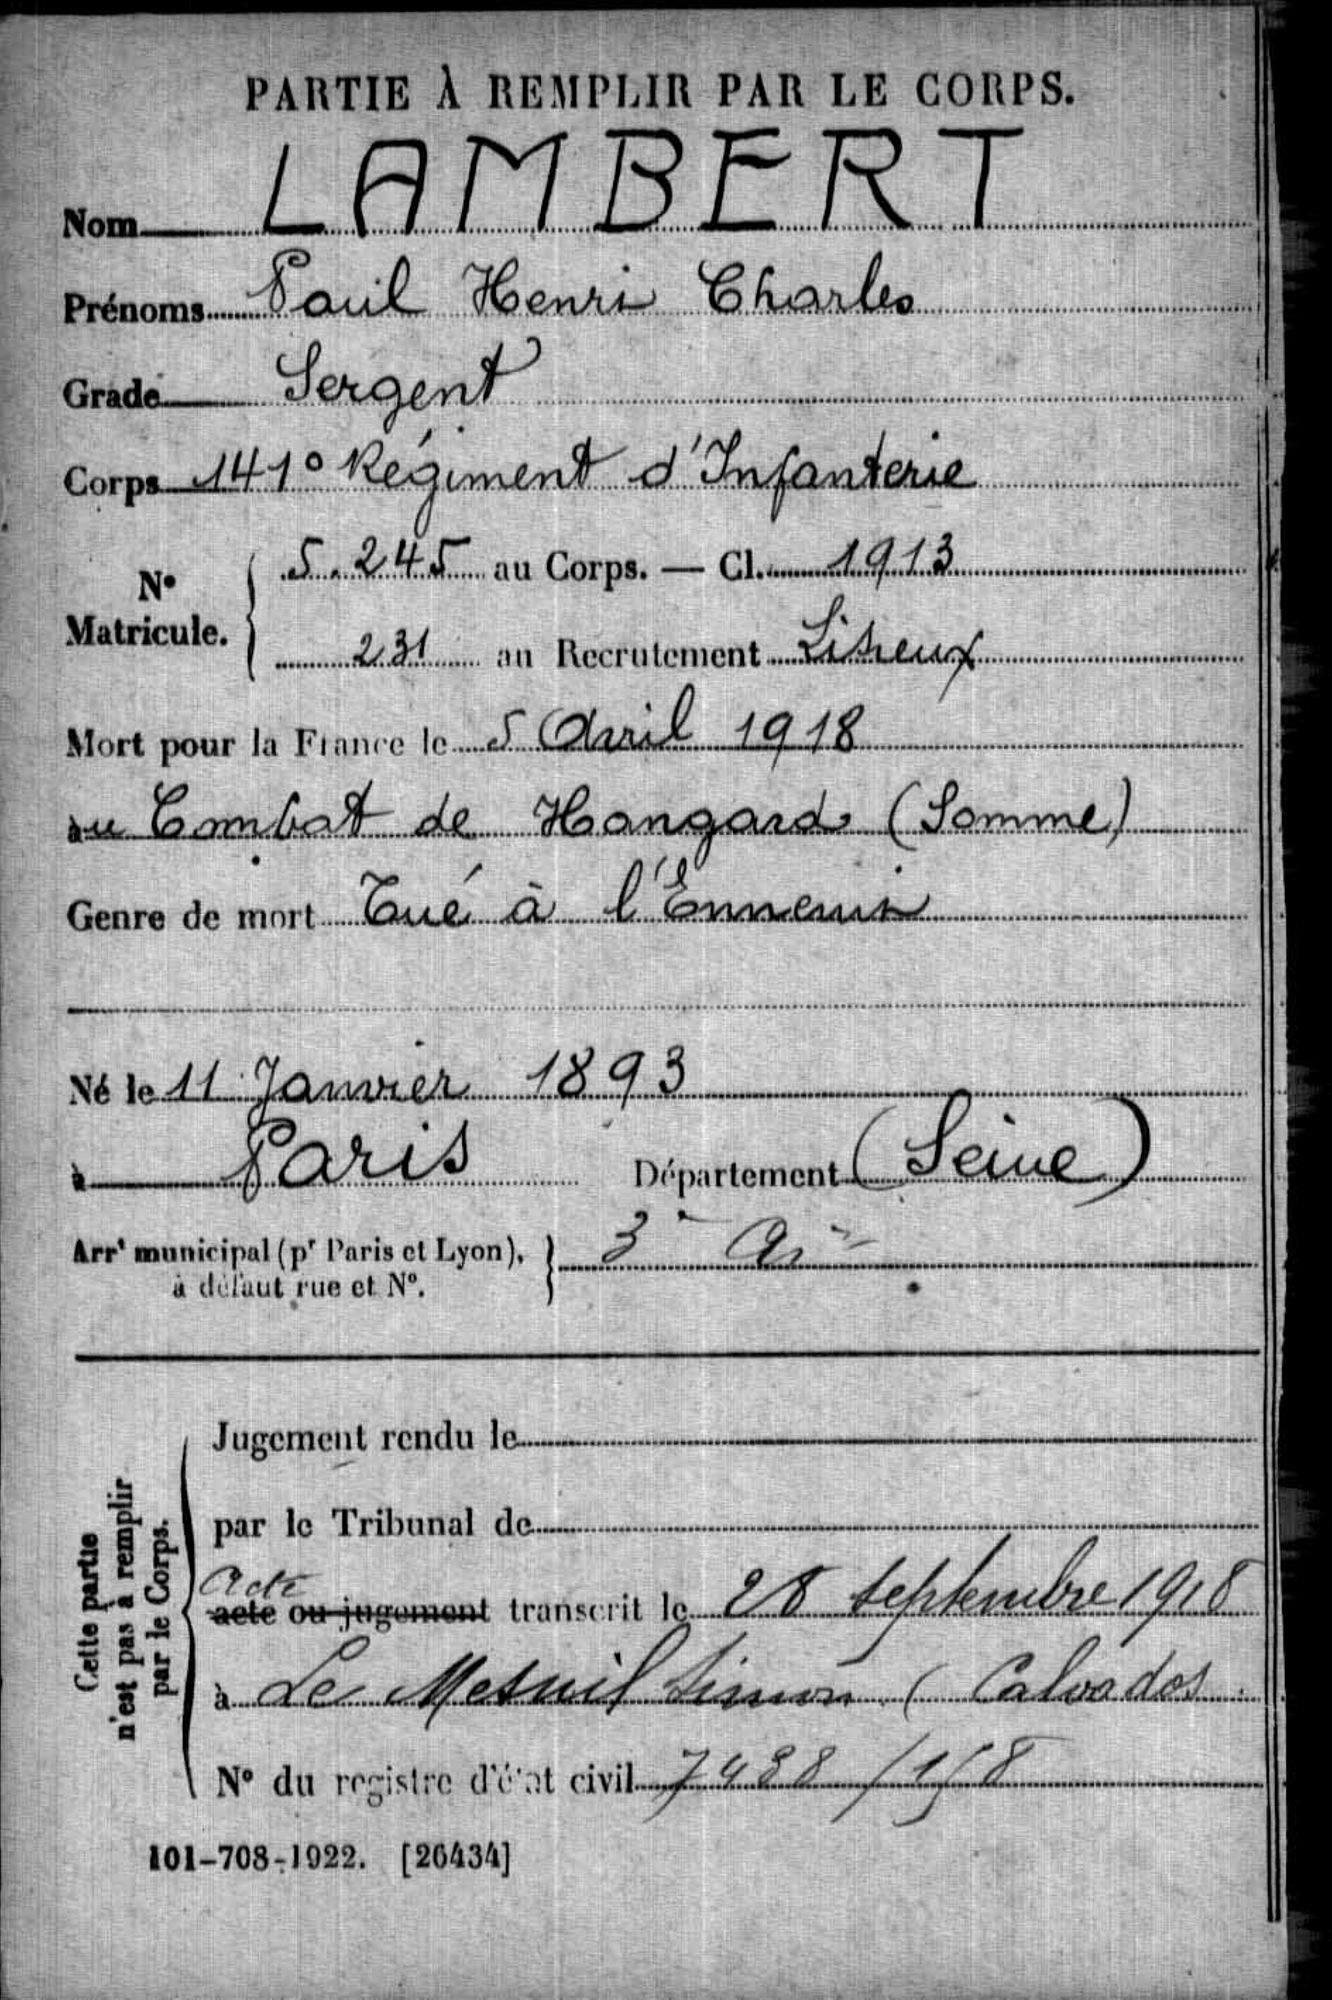 PARTIE À REMPLIR PAR LE CORPS.
Nom LAMBERT
Prénoms Paul Henri Charles
Grade Sergent
Corps 141° Régiment d'Infanterie
N° Matricule. { 5.245 au Corps. — Cl. 1913
231 au Recrutement Lisieux
Mort pour la France le 5 Avril 1918
au Combat de Hangard (Somme)
Genre de mort Tué à l'Ennemi
Né le 11 Janvier 1893
à Paris Département (Seine)
Arrt municipal (pr Paris et Lyon), à défaut rue et N°. } 3e Art
Cette partie n'est pas à remplir par le Corps.
Jugement rendu le
par le Tribunal de
Acte
acte ou jugement transcrit le 28 septembre 1918
à Le Mesnil Simon (Calvados
N° du registre d'état civil
101-708-1922. [26434]